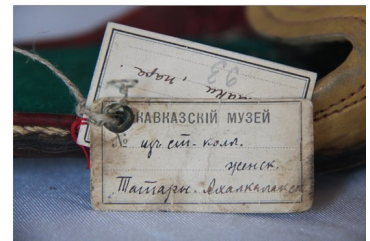 23
пара.
КАВКАЗСКІЙ МУЗЕЙ
№ изъ ст. колл.
женск.
Татары. Ахалкалакск